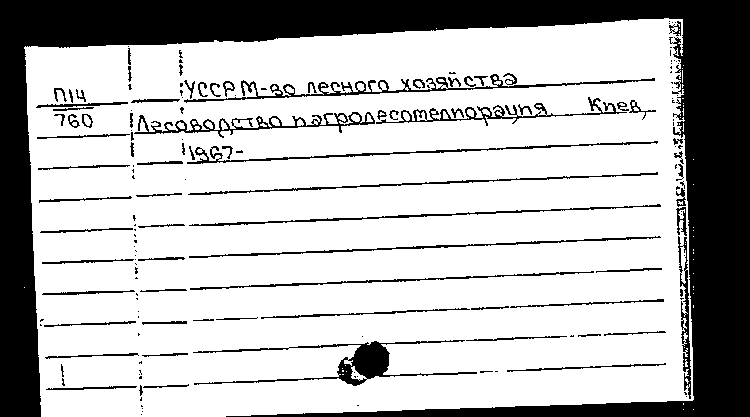 П14
760
УССР М-во лесного хозяйства
Лесоводство и агролесомелиорация. Киев,
1967-